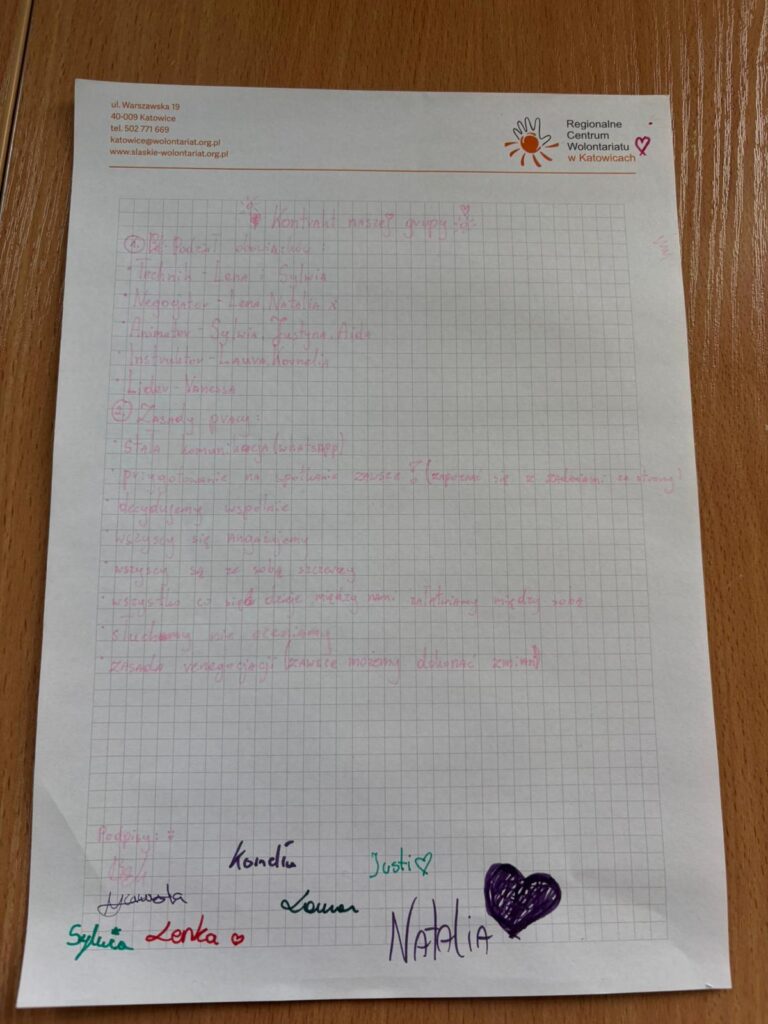 ul. Warszawska 19
40-009 Katowice
tel. 502 771 669
katowice@wolontariat.org.pl
www.slaskie-wolontariat.org.pl
Regionalne
Centrum
Wolontariatu
w Katowicach
Kontrakt naszej grupy
1. Podział obowiązków:
· Technik - Lena i Sylwia
· Negocjator - Lena, Natalia
· Animator - Sylwia, Justyna, Aida
· Instruktor - Laura, Kornelia
· Lider - Vanessa
2. Zasady pracy:
· stała komunikacja (whatsapp)
· przygotowanie na spotkanie zawsze! (zapoznać się z zadaniami ze strony)
· decydujemy wspólnie
· wszyscy się angażujemy
· wszyscy są ze sobą szczerzy
· wszystko co się dzieje między nami załatwiamy między sobą
· słuchamy nie oceniamy
· zasada renegocjacji (zawsze możemy dokonać zmian)
Podpisy:
Justi
Laura
Sylwia Lenka
Natalia